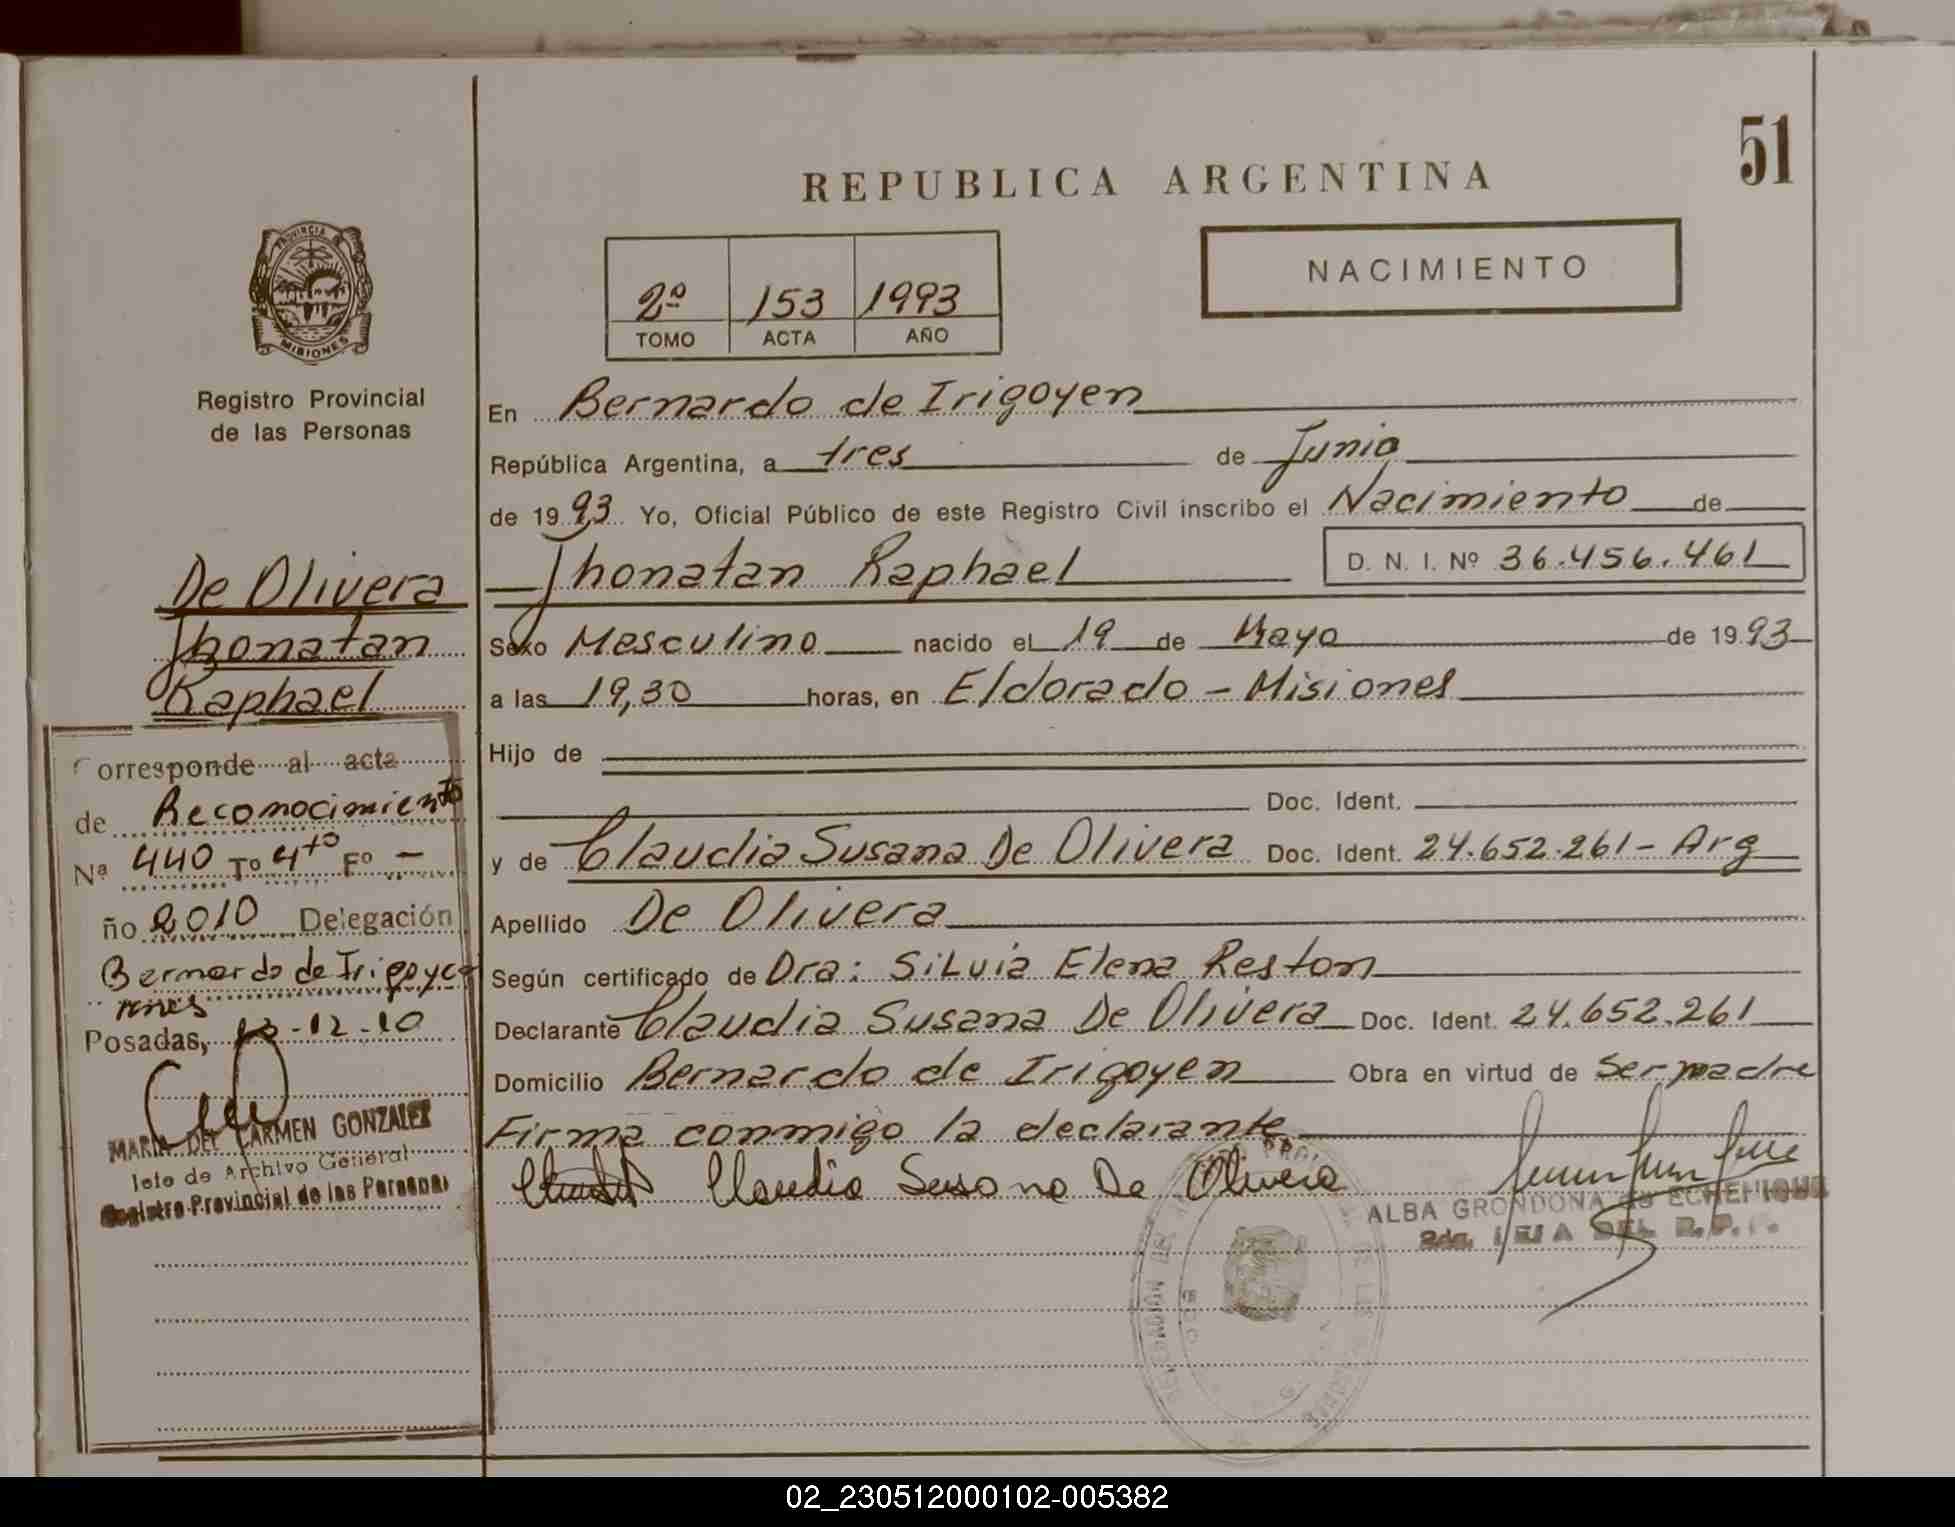 51
REPUBLICA ARGENTINA
NACIMIENTO
2º 153 1993
TOMO ACTA AÑO
PROVINCIA DE MISIONES
Registro Provincial
de las Personas
De Olivera
Jhonatan
Raphael
Corresponde al acta
de Reconocimiento
Nª 440 Tº 4to Fº —
ño 2010 Delegación
Bernardo de Irigoye
nes
Posadas, 13-12-10
MARIA DEL CARMEN GONZALEZ
Jefe de Archivo General
Registro Provincial de las Personas
En Bernardo de Irigoyen
República Argentina, a tres de Junio
de 1993 Yo, Oficial Público de este Registro Civil inscribo el Nacimiento de
Jhonatan Raphael D. N. I. Nº 36.456.461
Sexo Mesculino nacido el 19 de Mayo de 1993
a las 19,30 horas, en Eldorado - Misiones
Hijo de
Doc. Ident.
y de Claudia Susana De Olivera Doc. Ident. 24.652.261 - Arg
Apellido De Olivera
Según certificado de Dra: Silvia Elena Reston
Declarante Claudia Susana De Olivera Doc. Ident. 24.652.261
Domicilio Bernardo de Irigoyen Obra en virtud de ser madre
Firma conmigo la declarante
Claudia Susana De Olivera
ALBA GRONDONA de ECHENIQUE
2da. JEFA DEL R.P.P.
02_230512000102-005382